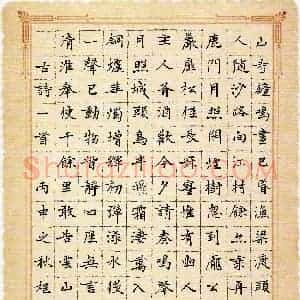 山寺鐘鳴晝已昏漁梁渡頭
人隨沙路向江村余亦乘舟
鹿門月照開煙樹忽到龐公
巖扉松徑長寂寥惟有幽人
主人有酒歡今夕請奏鳴琴
月照城頭烏半飛霜淒萬
銅爐華燭燭增輝初彈淥水後
一聲已動物皆靜四座無言
清淮奉使千餘里敢告雲山
古詩二首 丙申之秋